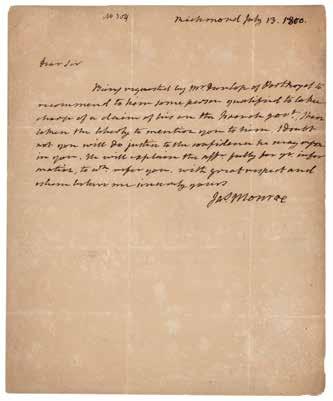 No 304
Richmond July 13. 1800.
Dear Sir
Being requested by Mr Dunlop of Port Royal to
recommend to him some person qualified to take
charge of a claim of his on the French govt. I have
taken the liberty to mention you to him. I doubt
not you will do justice to the confidence he may repose
in you. He will explain the affr. fully for yr. infor
mation, to wh. refer you. with great respect and
esteem believe me sincerely yours
Jas Monroe